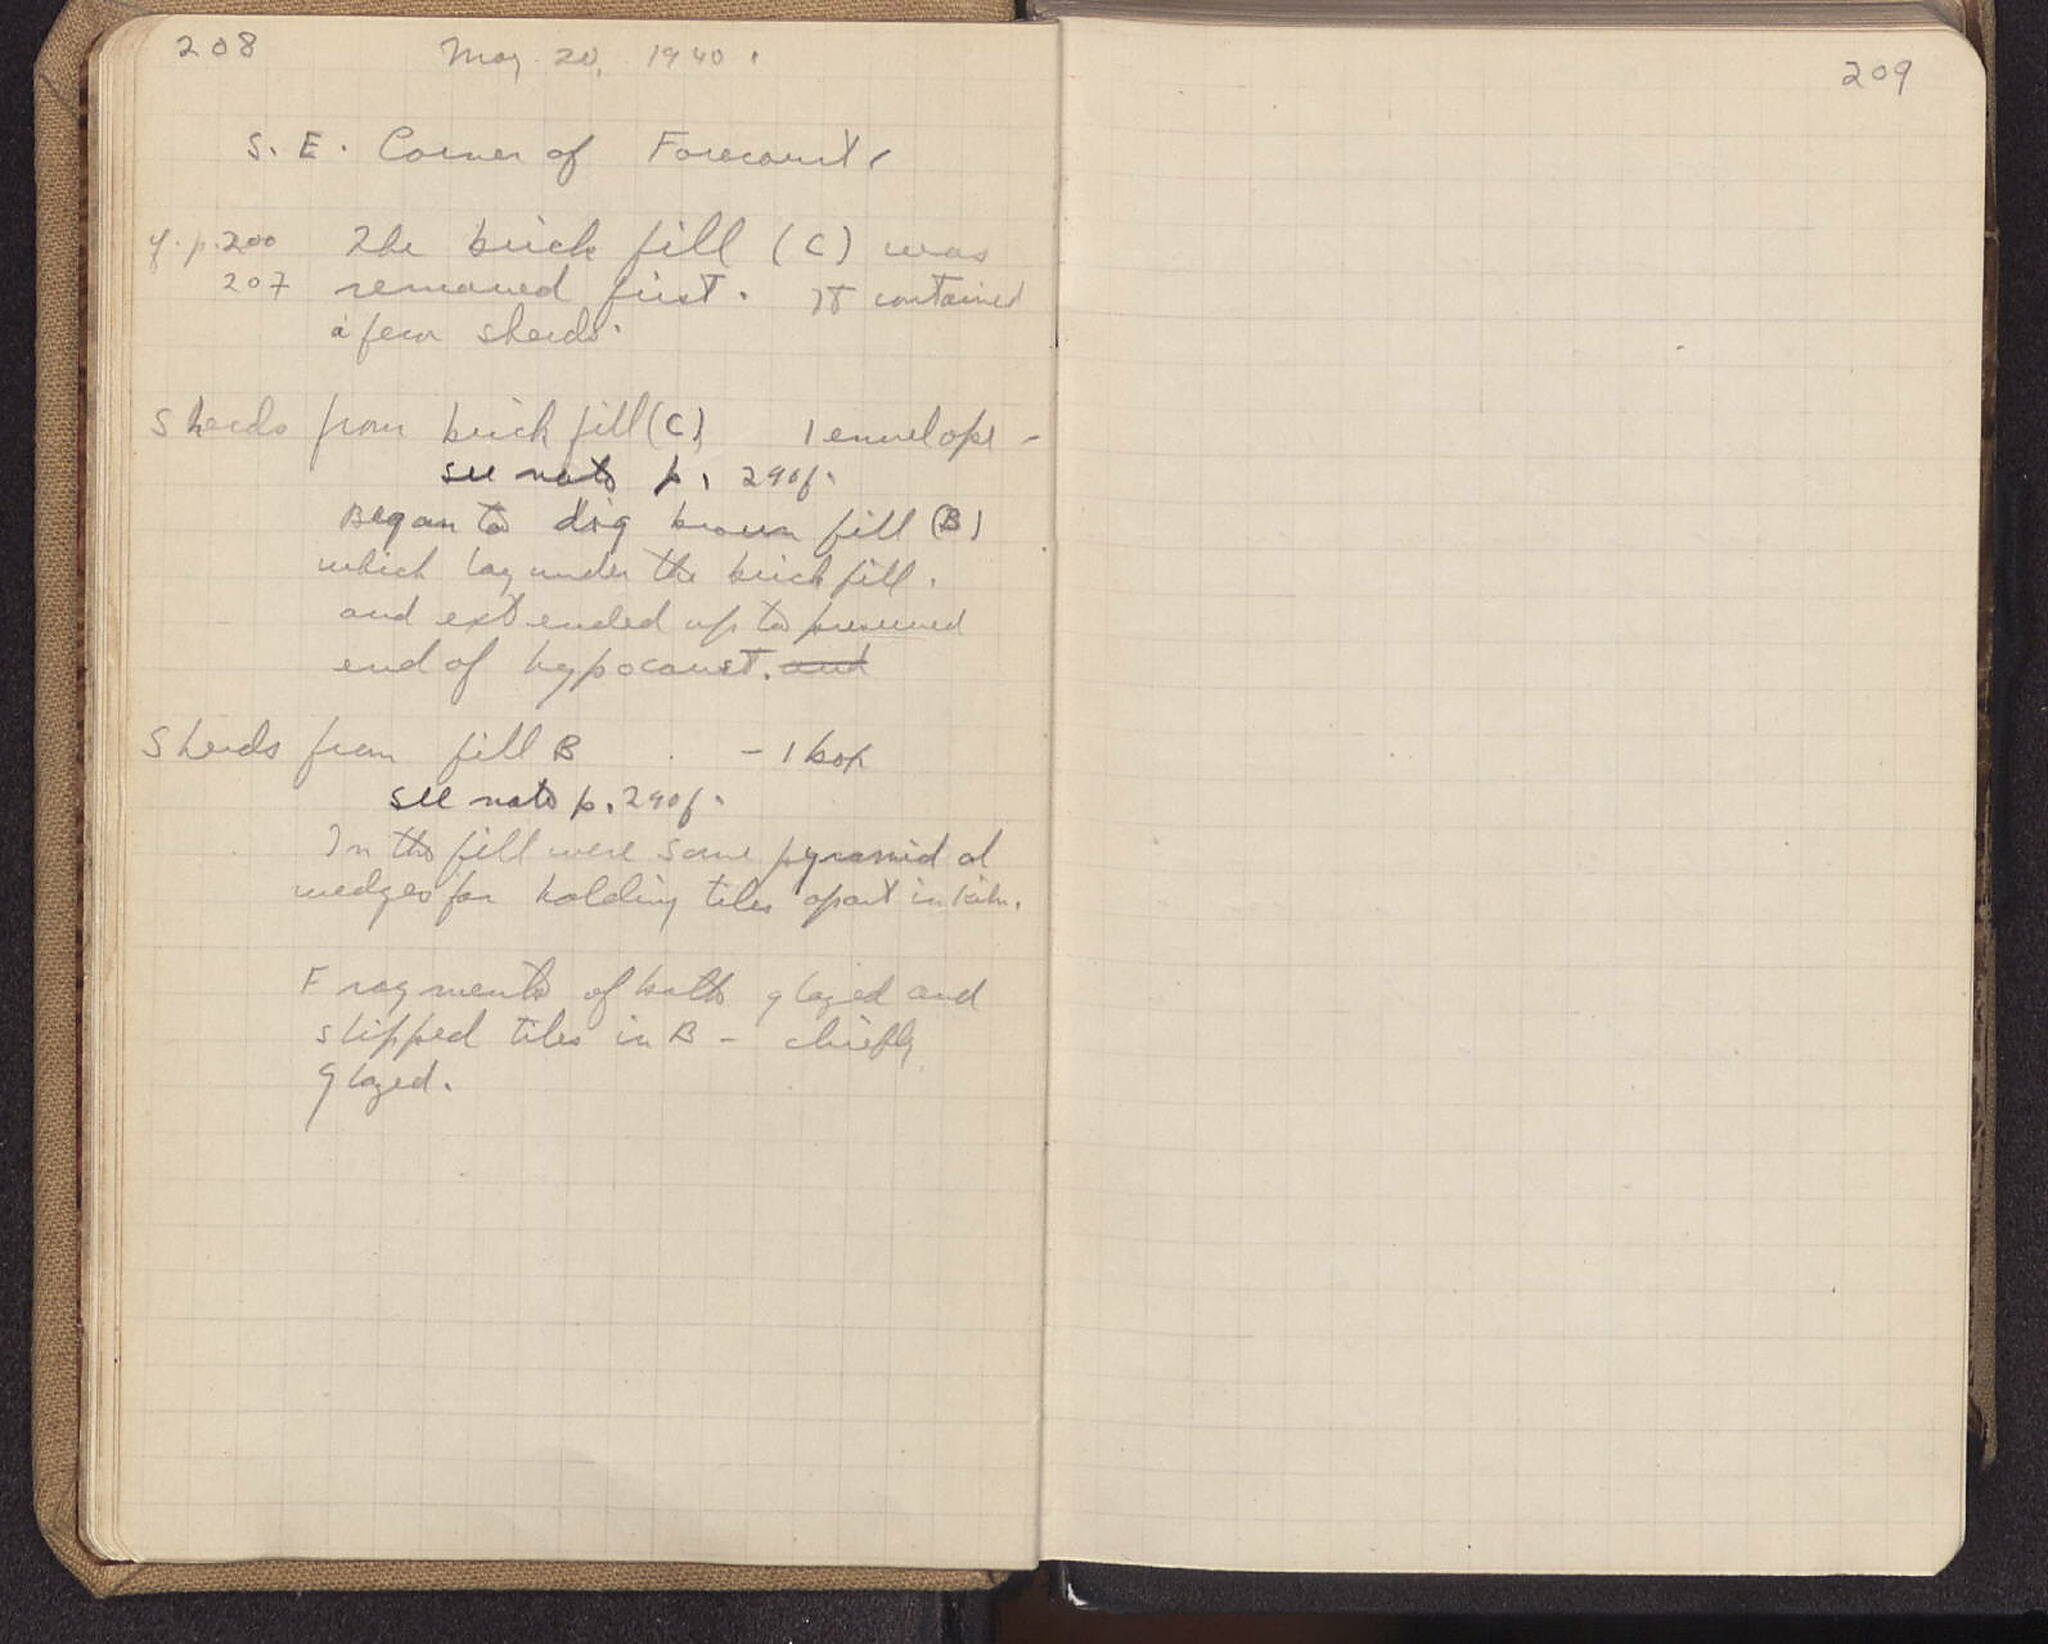 208 May 20, 1940.
S. E. Corner of Forecourt.
cf. p. 200 The brick fill (C) was
207 removed first. It contained
a few sherds.
Sherds from brick fill (C) 1 envelope -
see note p. 290f.
Began to dig brown fill (B)
which lay under the brick fill.
and extended up to preserved
end of hypocaust. and
Sherds from fill B - 1 box
see note p. 290f.
In the fill were some pyramidal
wedges for holding tiles apart in kiln.
Fragments of both glazed and
slipped tiles in B - chiefly
glazed.
209